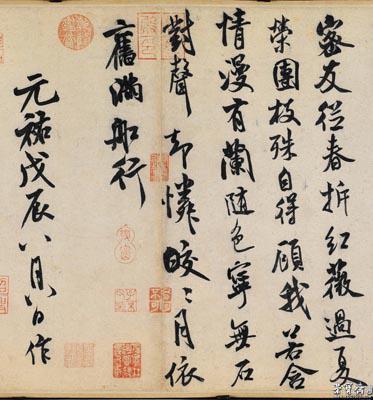 密友從春拆紅薇過夏
榮團枝殊自得顧我若含
情漫有蘭隨色寧無石
對聲却憐皎々月依
舊滿船行
元祐戊辰八月八日作